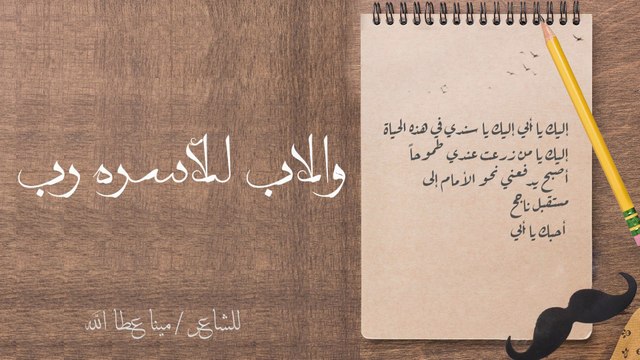 والاب للأسره رب
للشاعر / مينا عطا الله
إليك يا أبي إليك يا سندي في هذه الحياة
إليك يا من زرعت عندي طموحاً
أصبح يدفعني نحو الأمام إلى
مستقبل ناجح
أحبك يا أبي